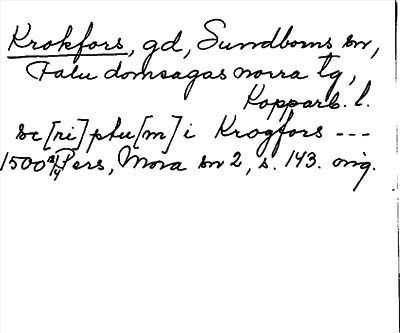 Krokfors, gd, Sundborns sn,
Falu domsagas norra tg,
Kopparb. l.
sc[ri]ptu[m] i Krogfors ---
1500 2/4 Pers, Mora sn 2, s. 143. orig.